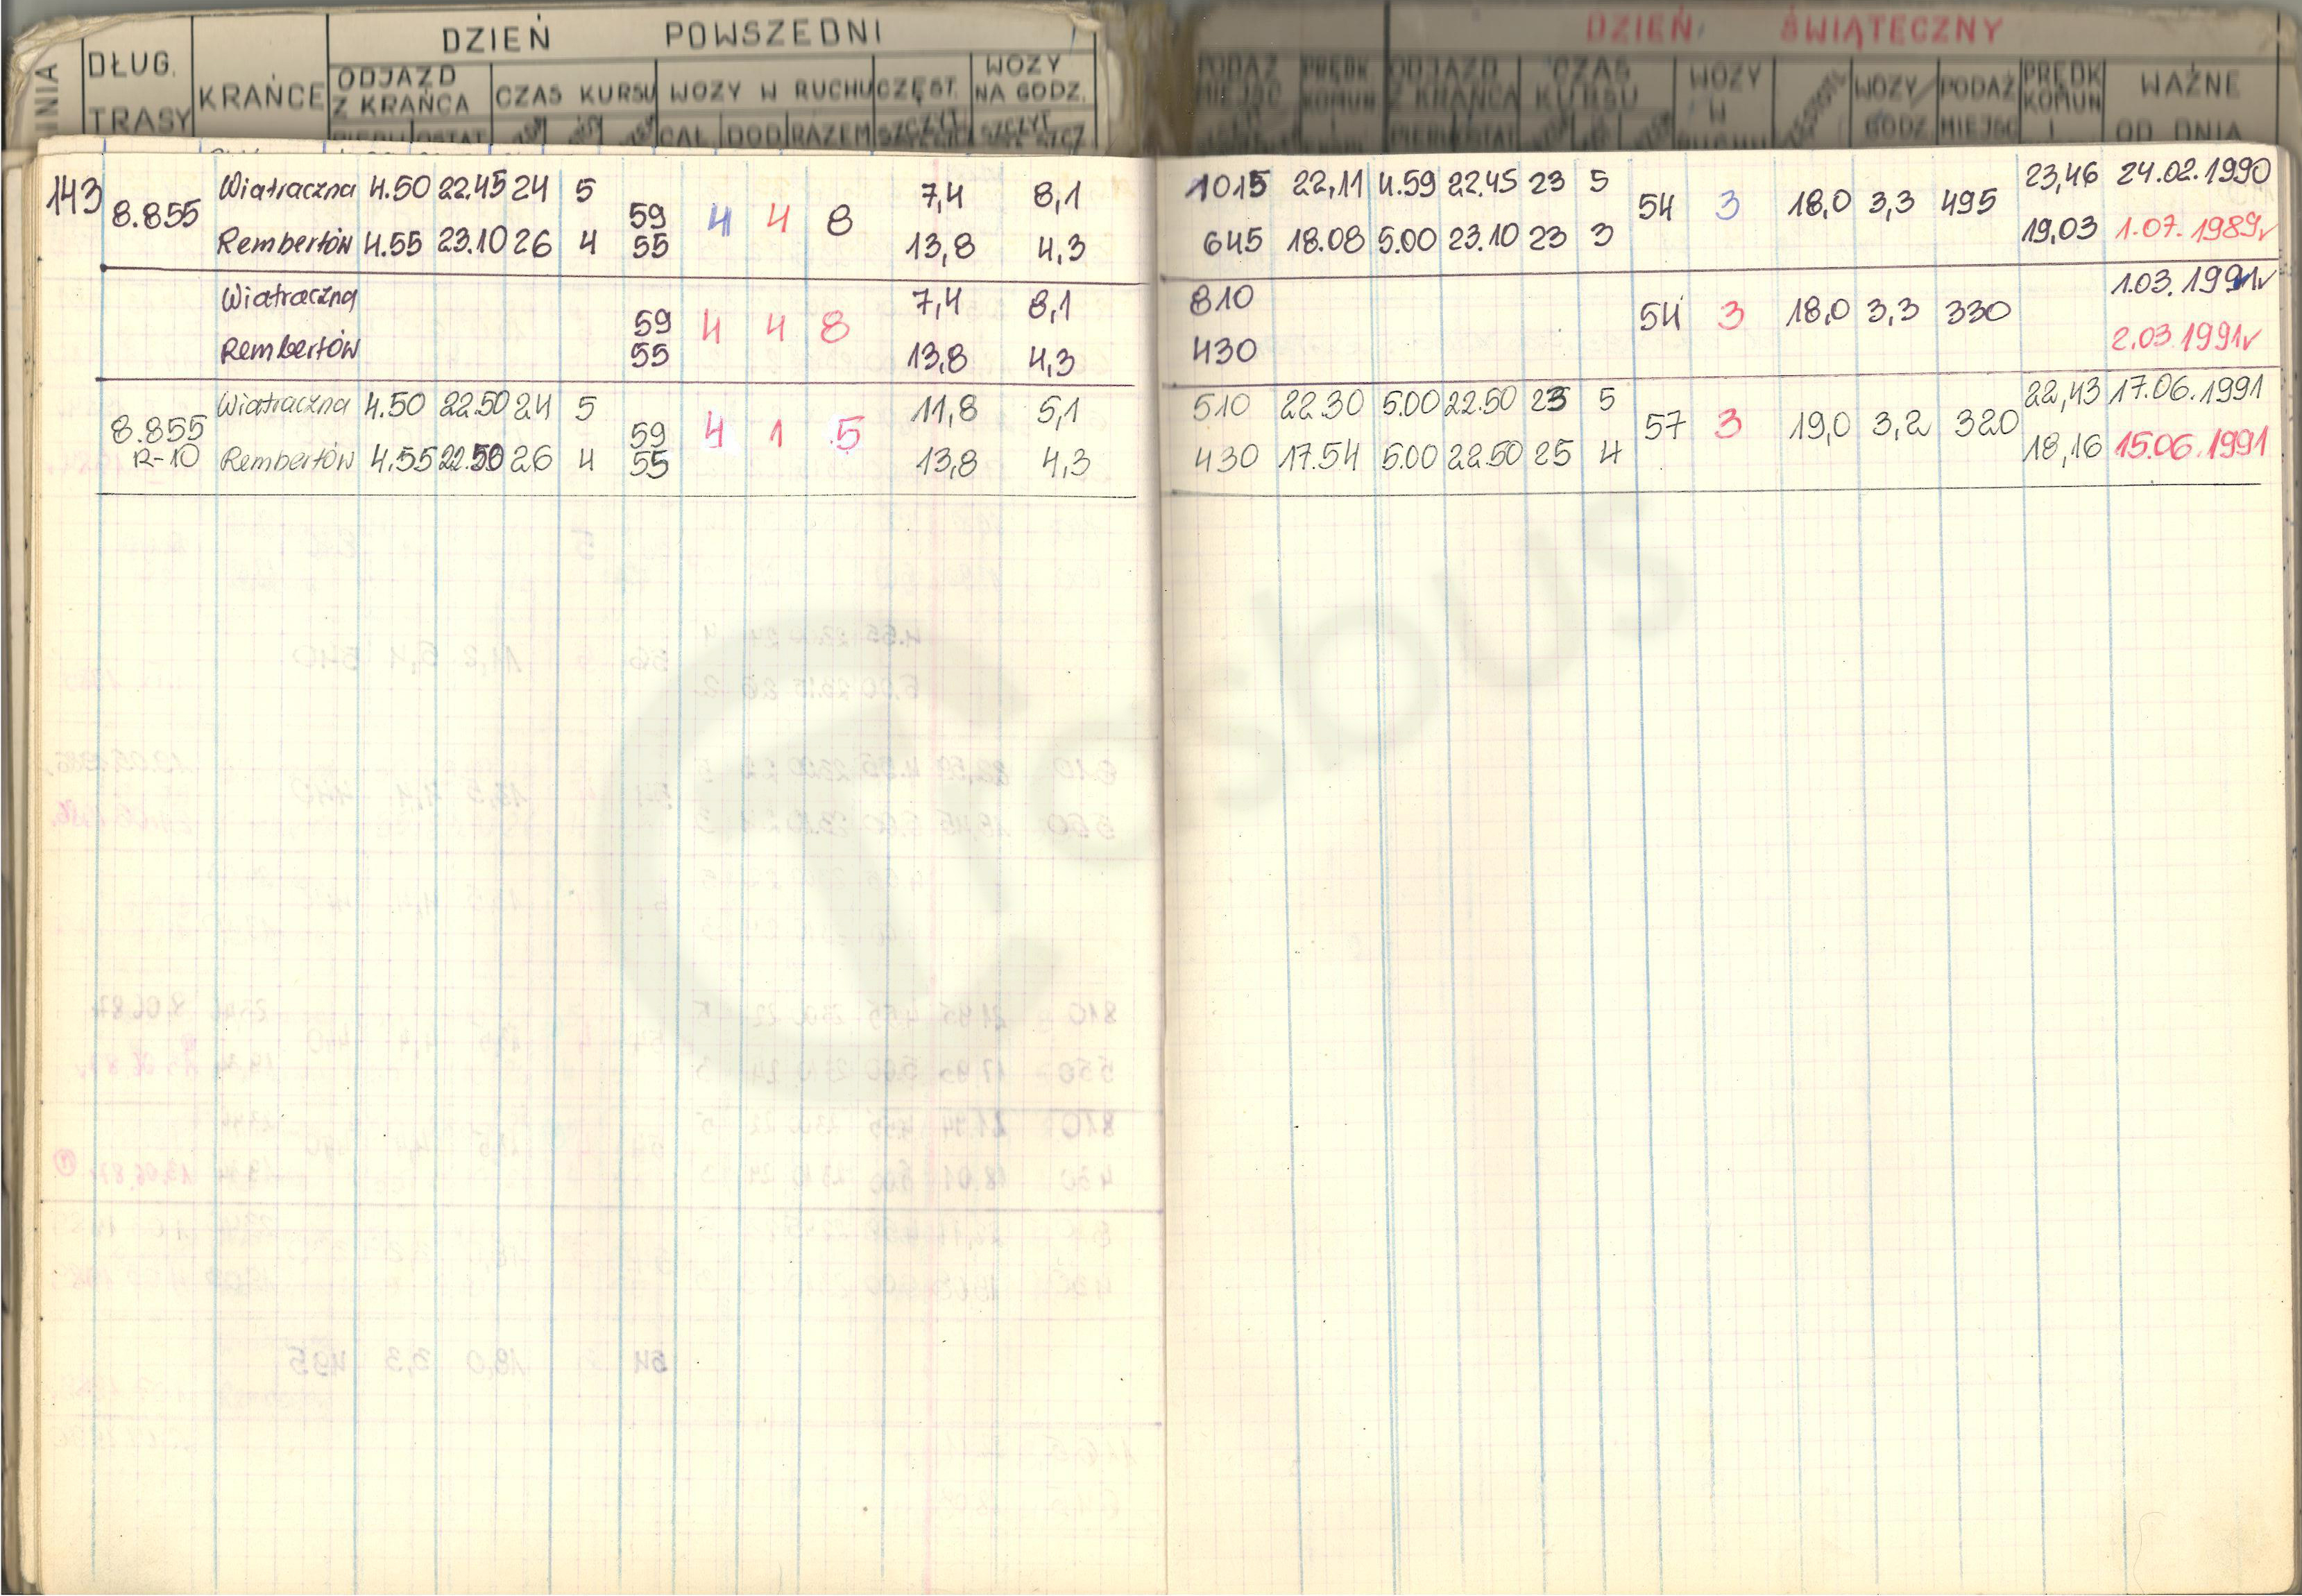 DZIEŃ POWSZEDNI DZIEŃ ŚWIĄTECZNY
LINIA DŁUG. TRASY KRAŃCE ODJAZD Z KRAŃCA CZAS KURSU WOZY W RUCHU CZĘST. WOZY NA GODZ. PODAŻ MIEJSC PRĘDK KOMUN ODJAZD Z KRAŃCA CZAS KURSU WOZY W RUCHU WOZY/GODZ PODAŻ MIEJSC PRĘDK KOMUN WAŻNE OD DNIA
CAŁ DOD RAZEM SZCZYT
143 Wiatraczna 4.50 22.45 24 5 7,4 8,1 1015 22,11 4.59 22.45 23 5 23,46 24.02.1990
8.855 59 4 4 8 54 3 18,0 3,3 495
Rembertów 4.55 23.10 26 4 55 13,8 4,3 645 18.08 5.00 23.10 23 3 19,03 1.07.1989
Wiatraczna 7,4 8,1 810 1.03.1991
59 4 4 8 54 3 18,0 3,3 330
Rembertów 55 13,8 4,3 430 2.03.1991
Wiatraczna 4.50 22.50 24 5 11,8 5,1 510 22.30 5.00 22.50 23 5 22,43 17.06.1991
8.855 59 4 1 5 57 3 19,0 3,2 320
R-10 Rembertów 4.55 22.50 26 4 55 13,8 4,3 430 17.54 5.00 22.50 25 4 18,16 15.06.1991
Trasbus